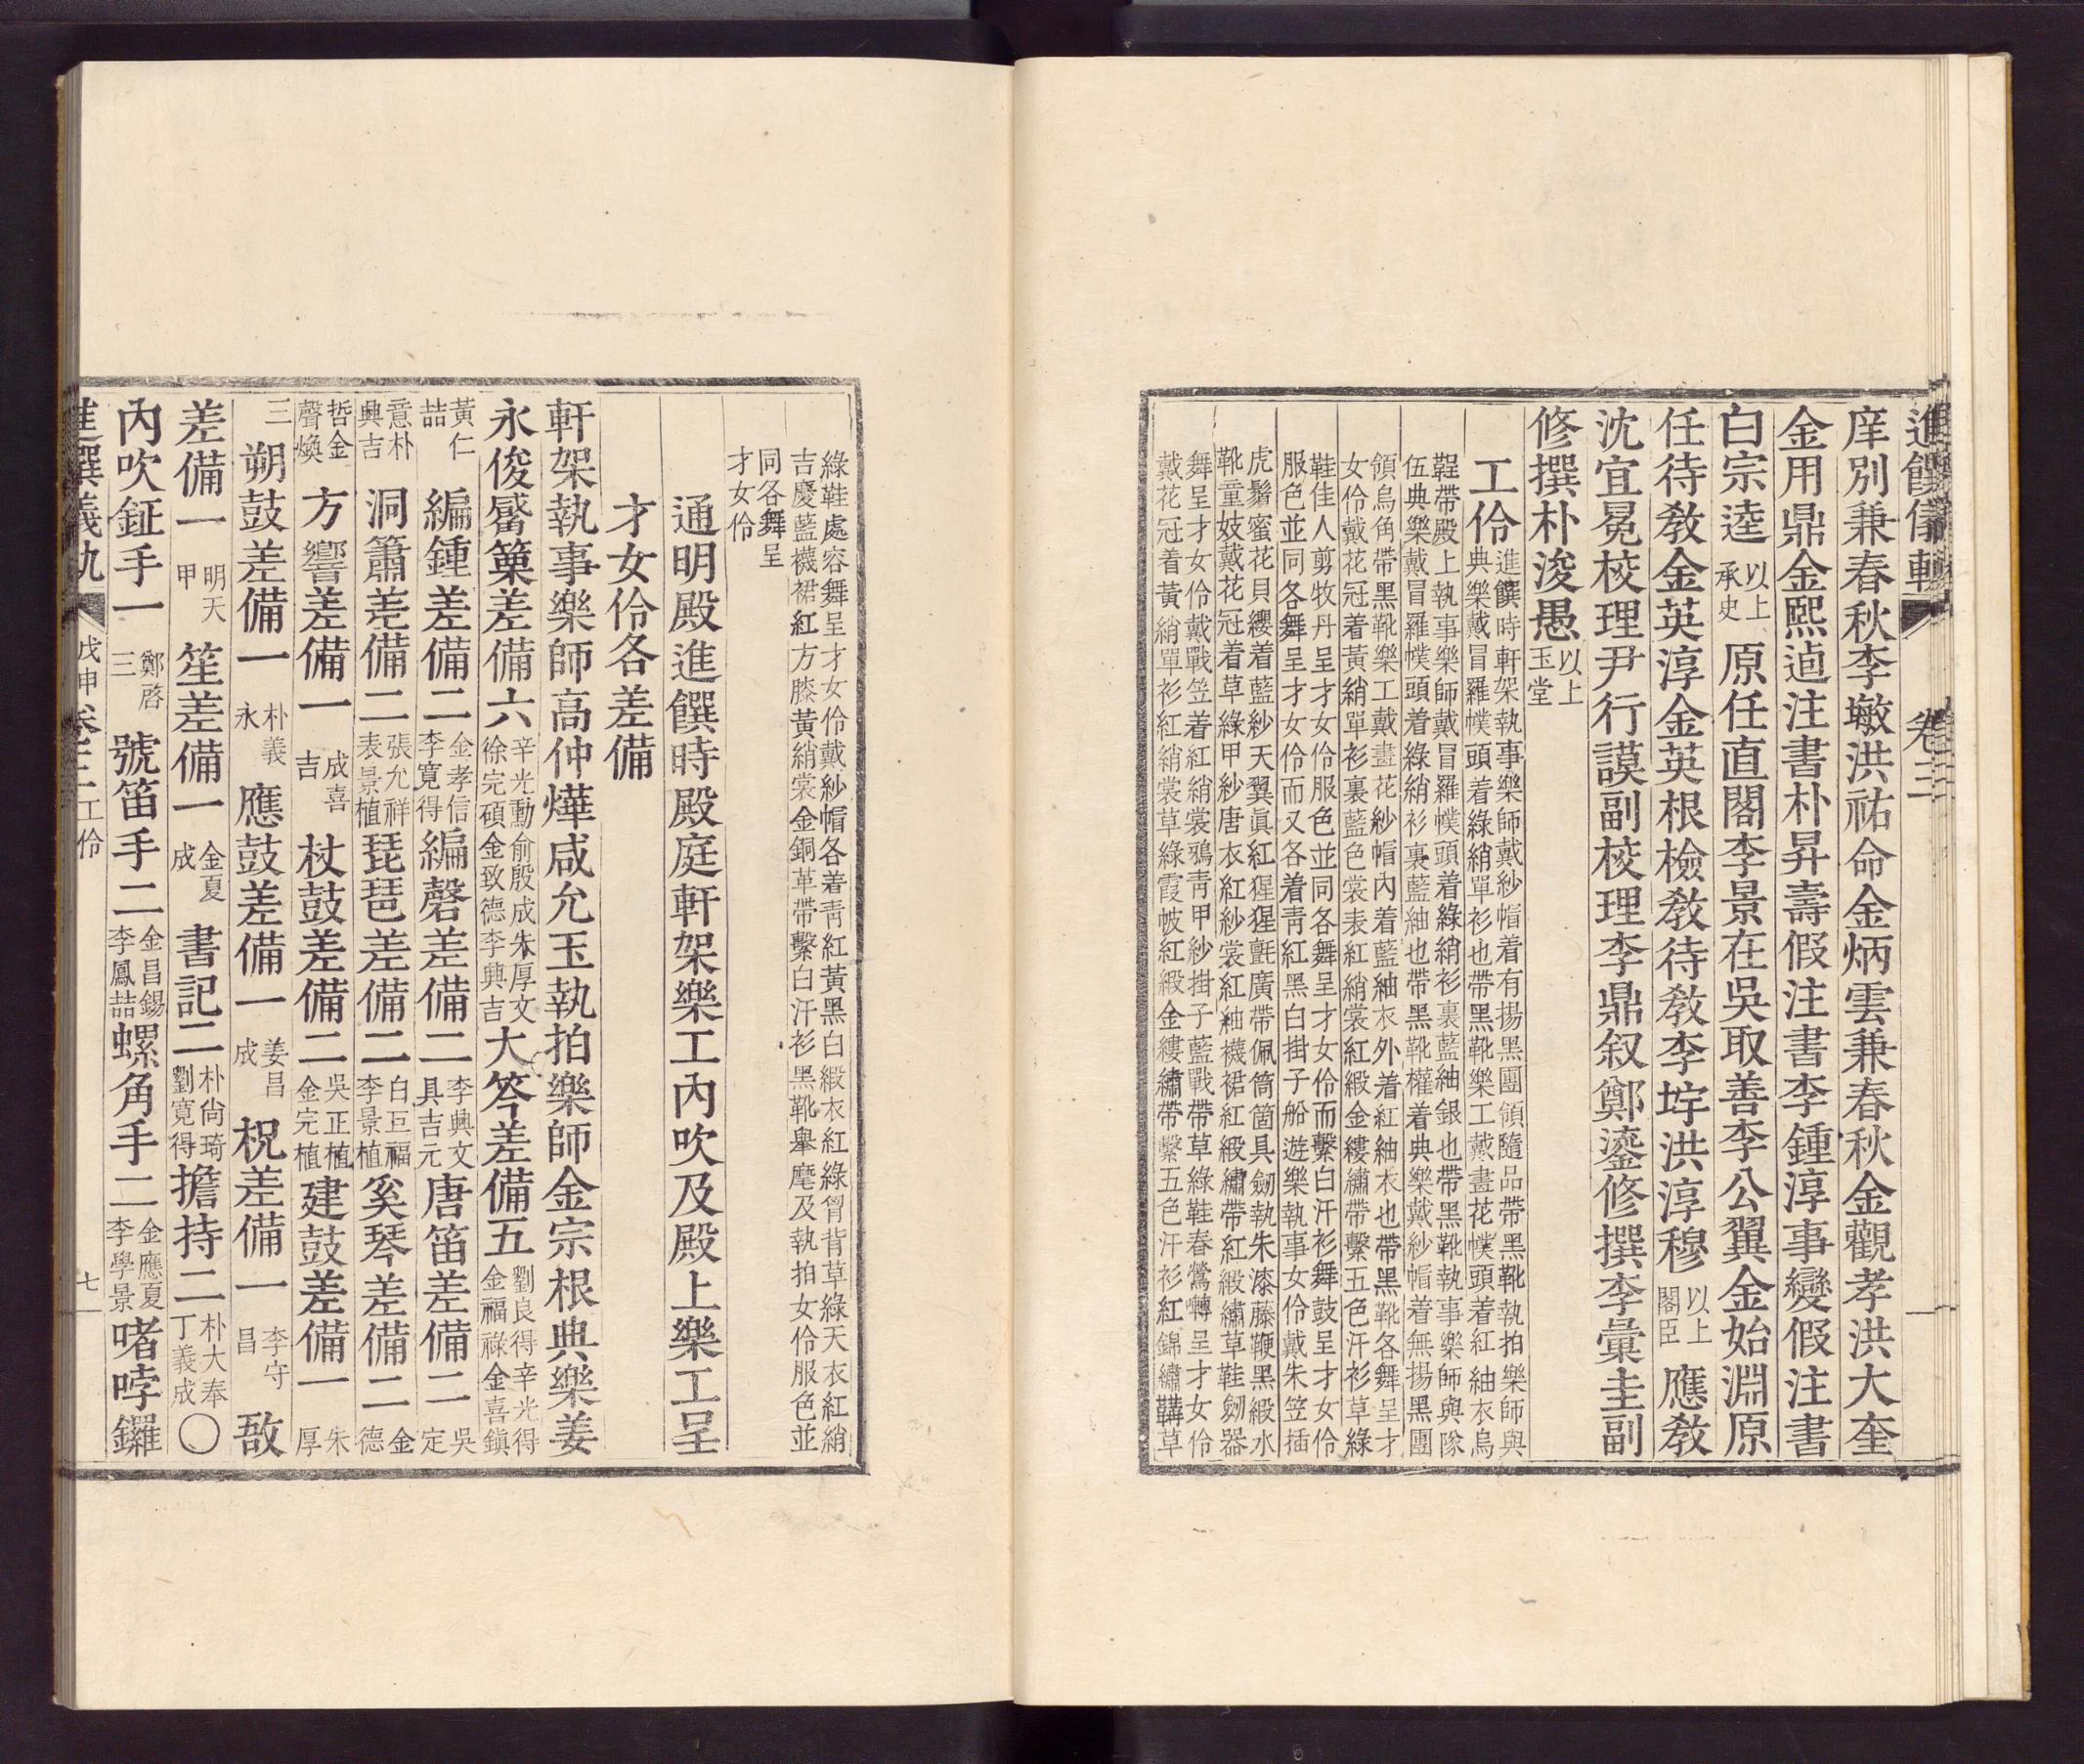 進饌儀軌 卷三
庠別兼春秋李㙜洪祐命金炳雲兼春秋金觀孝洪大奎
金用鼎金熙迫注書朴昇壽假注書李鍾淳事變假注書
白宗逵以上承史原任直閣李景在吳取善李公翼金始淵原
任待敎金英淳金英根檢敎待敎李㘾洪淳穆以上閣臣應敎
沈宜冕校理尹行謨副校理李鼎叙鄭瀅修撰李彙圭副
修撰朴浚愚以上玉堂
工伶進饌時軒架執事樂師戴紗帽着有揚黑團領隨品帶黑靴執拍樂師與
典樂戴冒羅幞頭着綠綃單衫也帶黑靴樂工戴畫花幞頭着紅紬衣烏
鞓帶殿上執事樂師戴冒羅幞頭着綠綃衫裏藍紬銀也帶黑靴執事樂師與隊
伍典樂戴冒羅幞頭着綠綃衫裏藍紬也帶黑靴權着典樂戴紗帽着無揚黑團
領烏角帶黑靴樂工戴畫花紗帽內着藍紬衣外着紅紬衣也帶黑靴各舞呈才
女伶戴花冠着黃綃單衫裏藍色裳表紅綃裳紅緞金縷繡帶繫五色汗衫草綠
鞋佳人剪牧丹呈才女伶服色並同各舞呈才女伶而繫白汗衫舞鼓呈才女伶
服色並同各舞呈才女伶而又各着青紅黑白掛子船遊樂執事女伶戴朱笠插
虎鬚蜜花貝纓着藍紗天翼眞紅猩猩氈廣帶佩筒箇具劒執朱漆藤鞭黑緞水
靴童妓戴花冠着草綠甲紗唐衣紅紗裳紅紬襪裙紅緞繡帶紅緞繡草鞋劒器
舞呈才女伶戴戰笠着紅綃裳鴉青甲紗掛子藍戰帶草綠鞋春鶯囀呈才女伶
戴花冠着黃綃單衫紅綃裳草綠霞帔紅緞金縷繡帶繫五色汗衫紅錦繡韝草
綠鞋處容舞呈才女伶戴紗帽各着青紅黃黑白緞衣紅綠胷背草綠天衣紅綃
吉慶藍襪裙紅方膝黃綃裳金銅革帶繫白汗衫黑靴擧麾及執拍女伶服色並
同各舞呈
才女伶
通明殿進饌時殿庭軒架樂工內吹及殿上樂工呈
才女伶各差備
軒架執事樂師高仲燁咸允玉執拍樂師金宗根典樂姜
永俊觱篥差備六辛光勳俞殷成朱厚文徐完碩金致德李興吉大笒差備五劉良得辛光得金福祿金喜鎭
黃仁喆編鍾差備二金孝信李寬得編磬差備二李興文具吉元唐笛差備二吳定
意朴興吉洞簫差備二張允祥表景植琵琶差備二白巨福李景植奚琴差備二金德
哲金聲煥方響差備一成喜吉杖鼓差備二吳正植金完植建鼓差備一朱厚
三朔鼓差備一朴義永應鼓差備一姜昌成柷差備一李守昌敔
差備一明天甲笙差備一金夏成書記二朴尙琦劉寬得擔持二朴大奉丁義成〇
內吹鉦手一鄭啓三號笛手二金昌錫李鳳喆螺角手二金應夏李學景啫哱鑼
進饌儀軌 戊申卷三 工伶 七